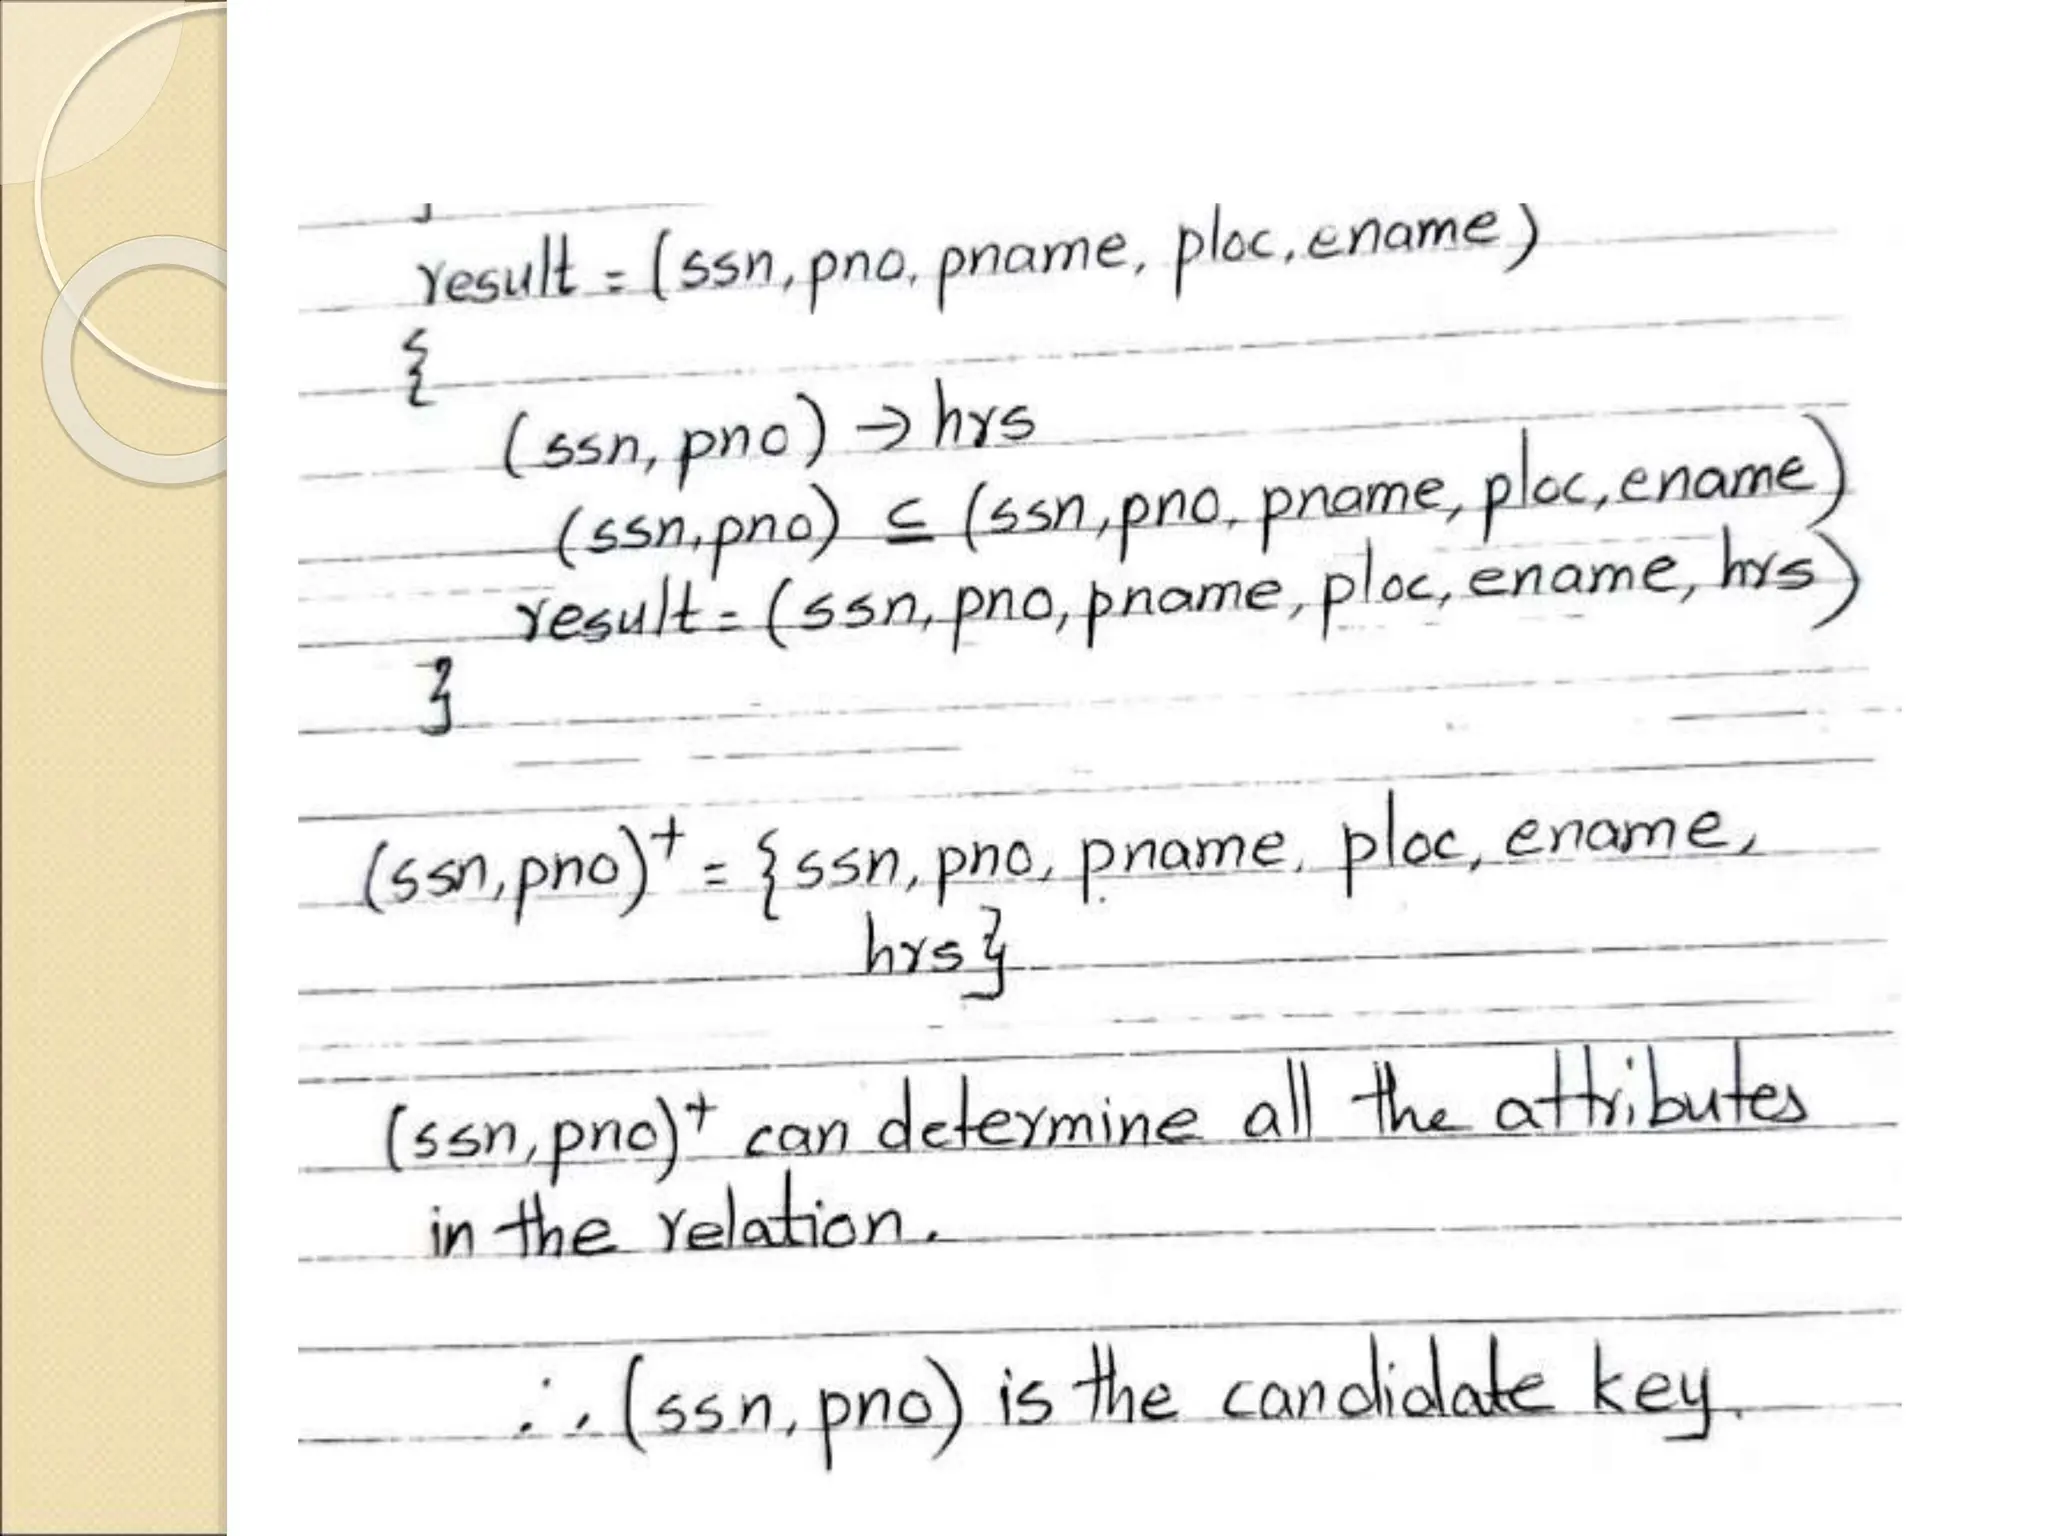 }
result = (ssn, pno, pname, ploc, ename)
{
(ssn, pno) → hrs
(ssn, pno) ⊆ (ssn, pno, pname, ploc, ename)
result = (ssn, pno, pname, ploc, ename, hrs)
}
(ssn, pno)⁺ = {ssn, pno, pname, ploc, ename,
hrs}
(ssn, pno)⁺ can determine all the attributes
in the relation.
∴ (ssn, pno) is the candidate key.